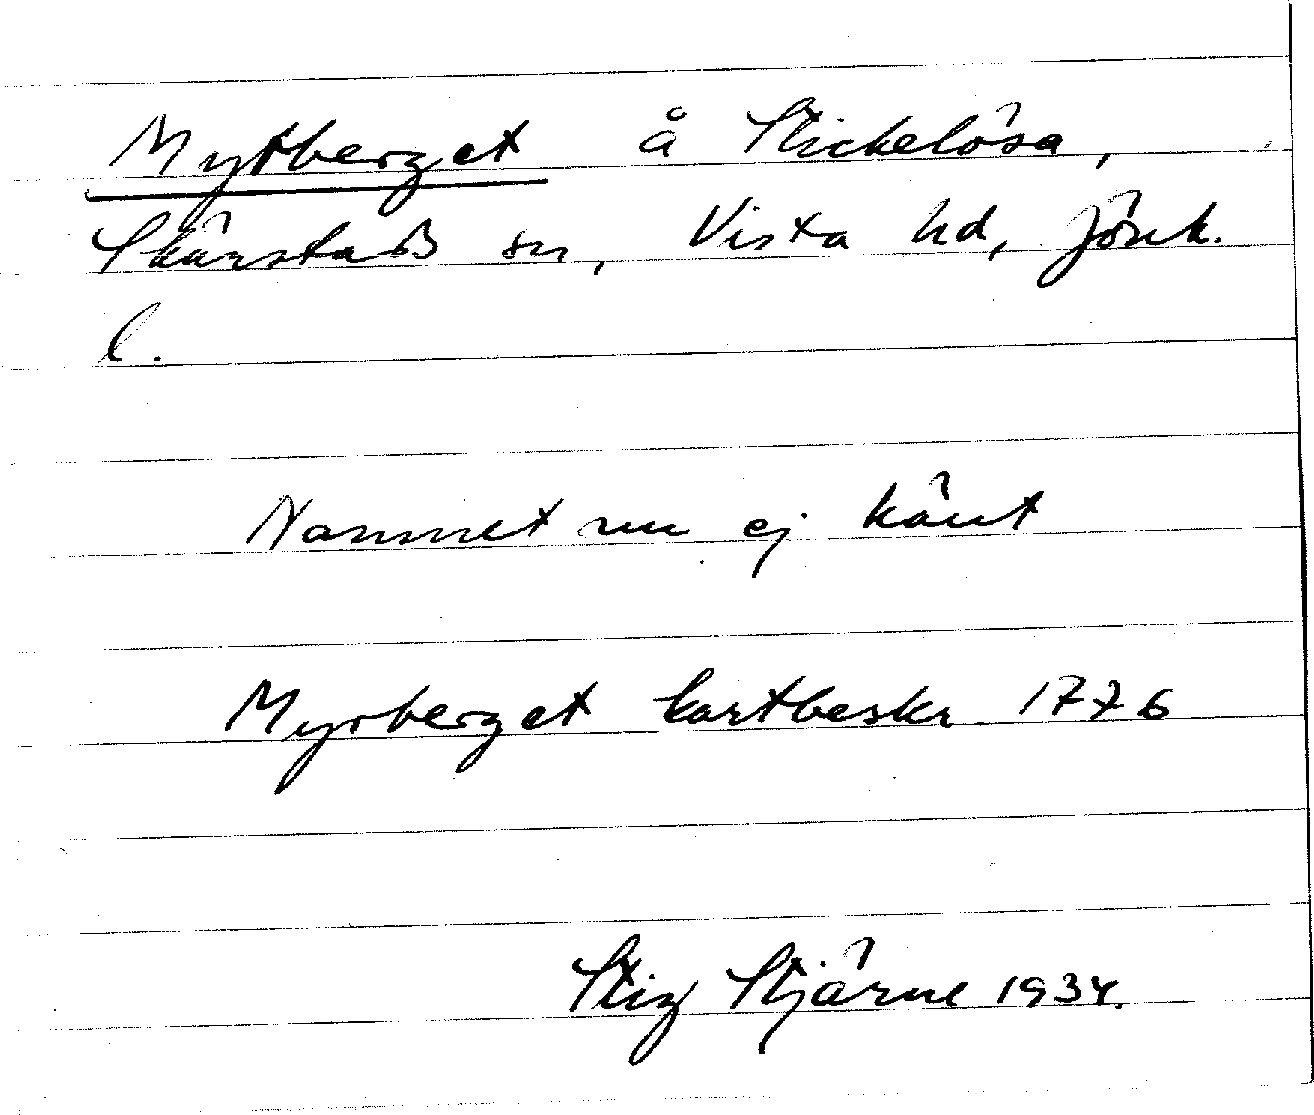 Myrberget å Stickelösa,
Skärstads sn, Vista hd, Jönk.
l.
Namnet nu ej känt
Myrberget kartbeskr 1776
Stig Stjärne 1934.